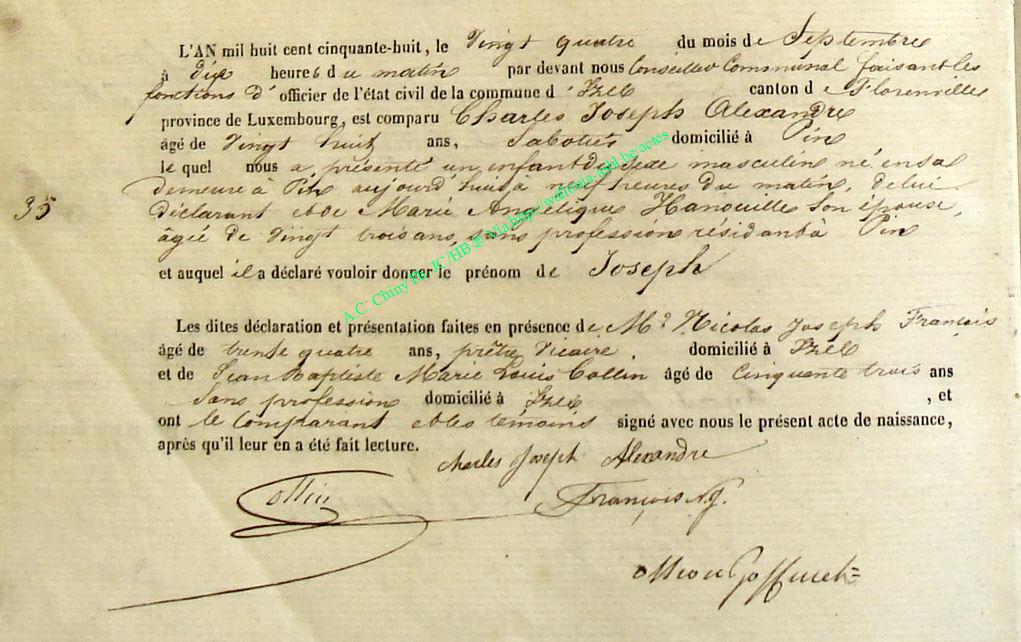 L'AN mil huit cent cinquante-huit, le Vingt quatre du mois de Septembre
à dix heures du matin par devant nous Conseiller Communal faisant les
fonctions d' officier de l'état civil de la commune d' Izel canton de Florenville
province de Luxembourg, est comparu Charles Joseph Alexandre
âgé de Vingt huit ans, Sabotier domicilié à Pin
le quel nous a présenté un enfant du sexe masculin né en sa
demeure à Pin aujourd'hui à neuf heures du matin, de lui
35 déclarant et de Marie Angélique Hanouille son épouse,
âgée de vingt trois ans, sans profession résidant à Pin
et auquel il a déclaré vouloir donner le prénom de Joseph
A.C. Chiny Ph. JC/HB ® Via http://wallonia-asbl.be/actes
Les dites déclaration et présentation faites en présence de Mr Nicolas Joseph François
âgé de trente quatre ans, prêtre Vicaire, domicilié à Izel
et de Jean Baptiste Marie Louis Collin âgé de Cinquante trois ans
Sans profession domicilié à Izel , et
ont le Comparant et les témoins signé avec nous le présent acte de naissance,
après qu'il leur en a été fait lecture.
Charles Joseph Alexandre
Collin François N. J.
Goffinet